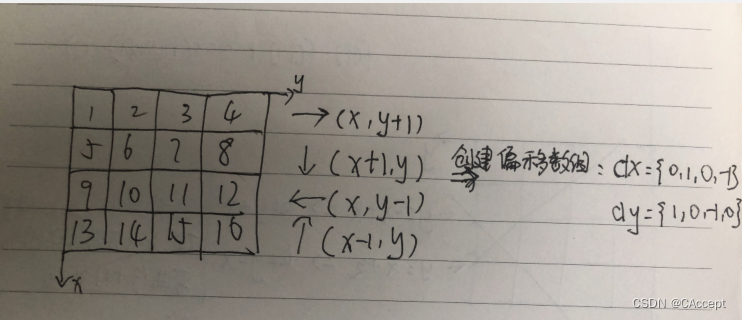 y
1 2 3 4
5 6 7 8
9 10 11 12
13 14 15 16
x
→(x,y+1)
↓(x+1,y)
←(x,y-1)
↑(x-1,y)
创建偏移数组：dx={0,1,0,-1}
dy={1,0,-1,0}
CSDN @CAccept